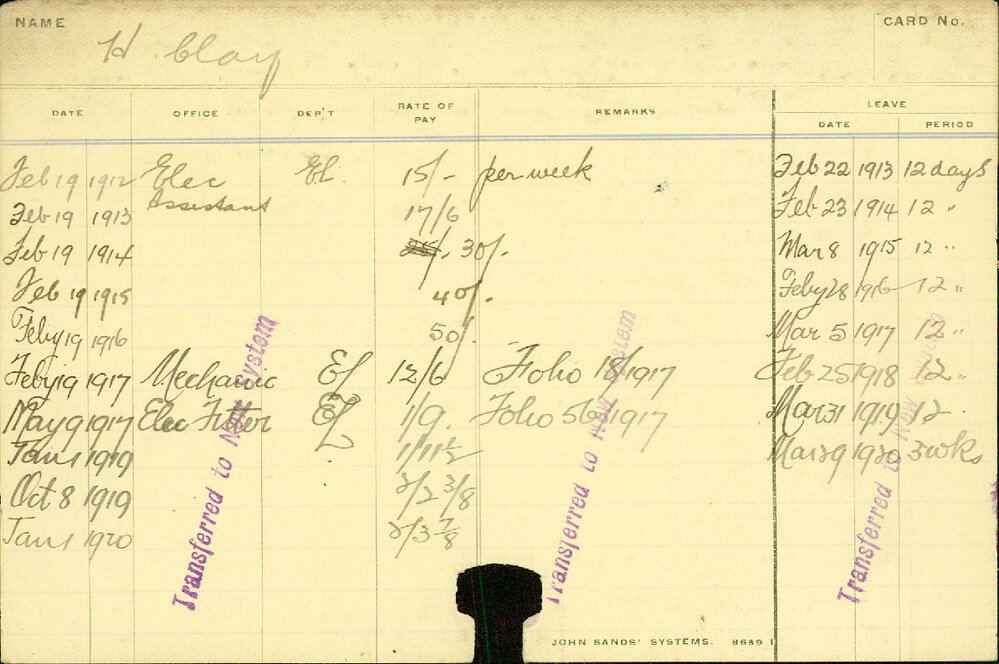 NAME
H. Clay
CARD No.
DATE OFFICE DEP'T RATE OF PAY REMARKS LEAVE
DATE PERIOD
Feb 19 1912 Elec El. 15/- per week Feb 22 1913 12 days
Assistant
Feb 19 1913 17/6 Feb 23 1914 12 "
Feb 19 1914 30/- Mar 8 1915 12 "
Feb 19 1915 40/- Feby 28 1916 12 "
Feby 19 1916 50/- Mar 5 1917 12 "
Feby 19 1917 Mechanic El 12/6 Folio 18/1917 Feb 25 1918 12 "
May 9 1917 Elec Fitter El 1/9. Folio 56/1917 Mar 31 1919 12 "
Jan 1 1919 1/11½ Mar 29 1920 3 wks
Oct 8 1919 2/2 3/8
Jan 1 1920 2/3 7/8
Transferred to New System
Transferred to New System
Transferred to New System
JOHN SANDS' SYSTEMS. 8689